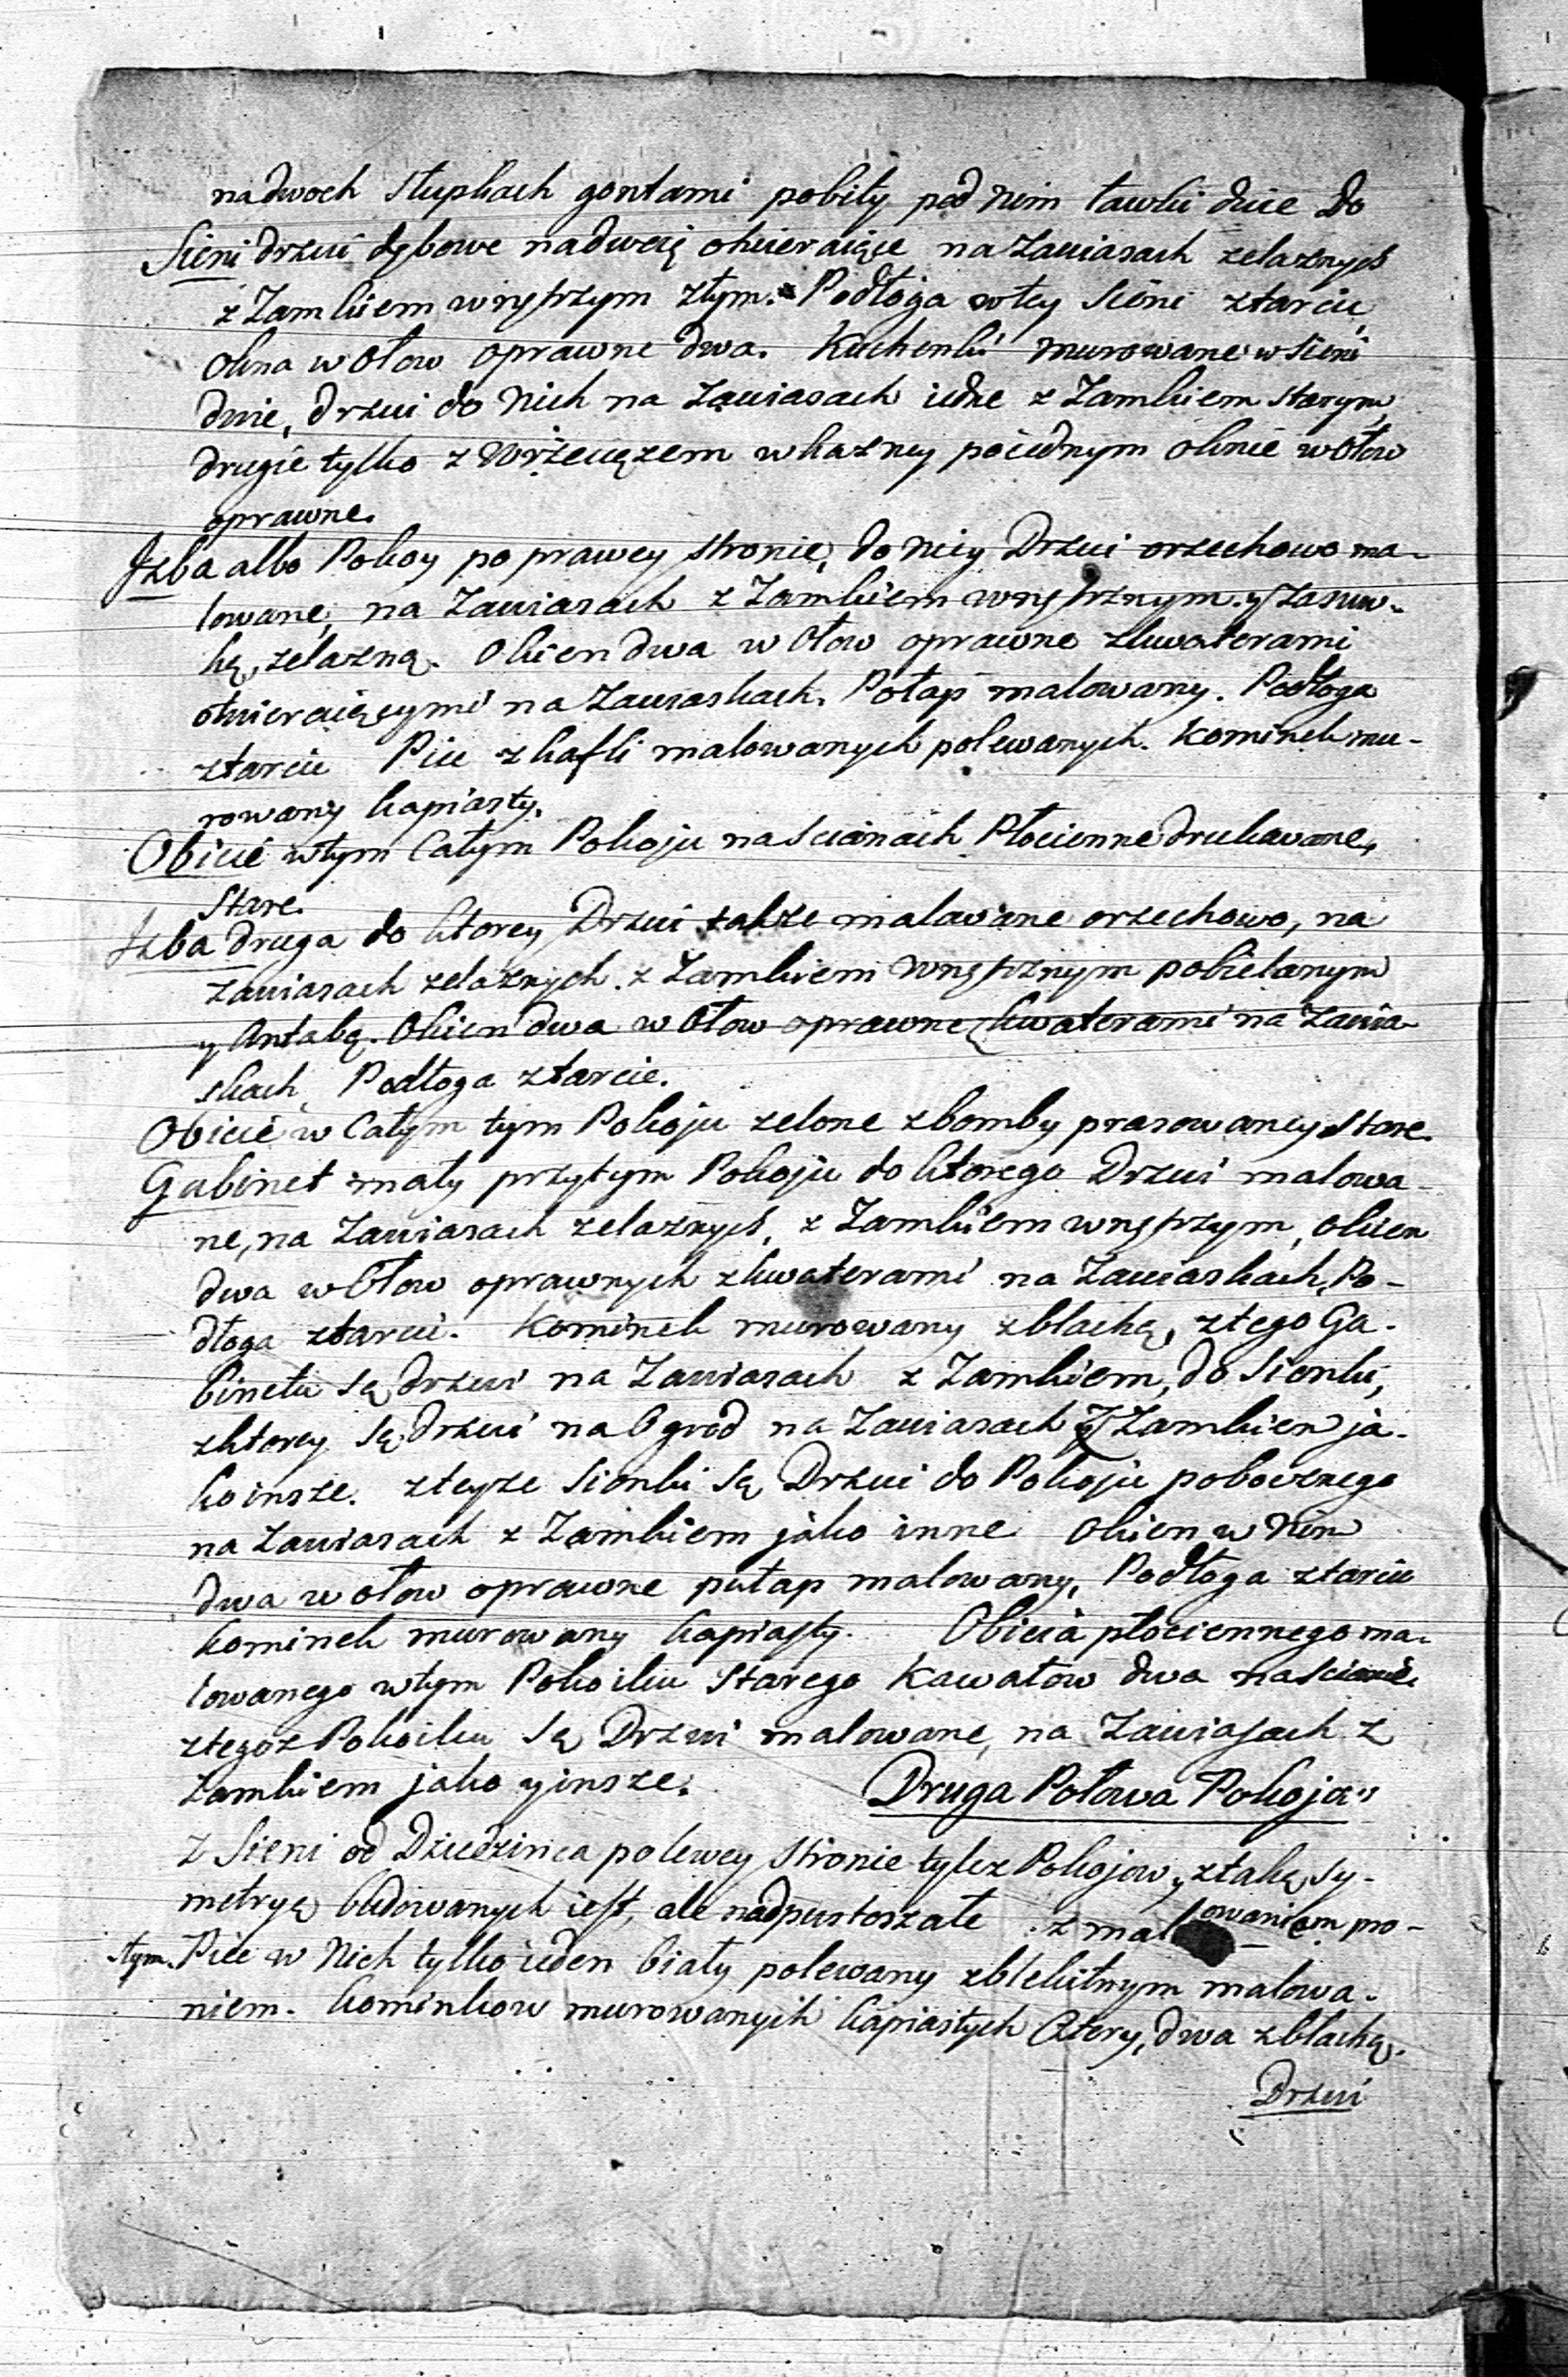 na dwoch słupkach gontami pobity pod nim ławki dwie Do
Sieni drzwi dębowe nadwoię otwieraiące na Zawiasach zelaznych
z Zamkiem wnętrzym złym. Podłoga w tey Sieni ztarcic,
okna w ołow oprawne dwa. Kuchenki murowane w Sieni
dwie, drzwi do Nich na Zawiasach iedne z Zamkiem starym,
drugie tylko z Wrzeciązem w kazney po iednym oknie w ołow
oprawne.
Jzba albo Pokoy po prawey stronie, do niey Drzwi orzechowo ma-
lowane, na Zawiasach z Zamkiem wnętrznym. y Zasuw-
ką, zelazną. Okien dwa w ołow oprawne zkwaterami
otwieraiącymi na Zawiaskach. Połap malowany. Podłoga
ztarcic Piec z kafli malowanych polewanych. Kominek mu-
rowany kapiasty.
Obicie w tym Całym Pokoju na Scianach Płocienne drukowane,
Stare.
Jzba druga do ktorey Drzwi także malowane orzechowo, na
zawiasach zelaznych. z Zamkiem wnętrznym pobielanym
y Antabą. Okien dwa w Ołow oprawne kwaterami na Zawia-
skach, Podłoga ztarcic.
Obicie w Całym tym Pokoju zelone zbomby prasowaney stare.
Gabinet mały przytym Pokoju do ktorego Drzwi malowa-
ne, na Zawiasach zelaznych, z Zamkiem wnętrzym, okien
dwa w Ołow oprawnych zkwaterami na Zawiaskach, Po-
dłoga ztarcic. Kominek murowany zblachą, ztego Ga-
binetu są drzwi na Zawiasach z Zamkiem, do Sienki,
zktorey są drzwi na Ogrod na Zawiasach z Zamkiem ja-
ko insze. zteyze Sionki są Drzwi do Pokoju pobocznego
na Zawiasach z Zamkiem jako inne Okien w Nim
dwa w ołow oprawne pułap malowany, Podłoga ztarcic
kominek murowany kapiasty. Obicia płociennego ma-
lowanego w tym Pokoiku Starego Kawałow dwa na scianie.
ztegoz Pokoiku są Drzwi malowane, na Zawiasach z
Zamkiem jako y insze. Druga Połowa Pokojow
Z Sieni od Dziedzinca po lewey Stronie tylez Pokojow, ztaką sy-
metryą budowanych iest, ale nadpustoszałe z malowaniem pro-
stym. Piec w Nich tylko ieden biały polewany zblekitnym malowa-
niem. kominkow murowanych kapiastych Cztery, dwa zblachą.
Drzwi